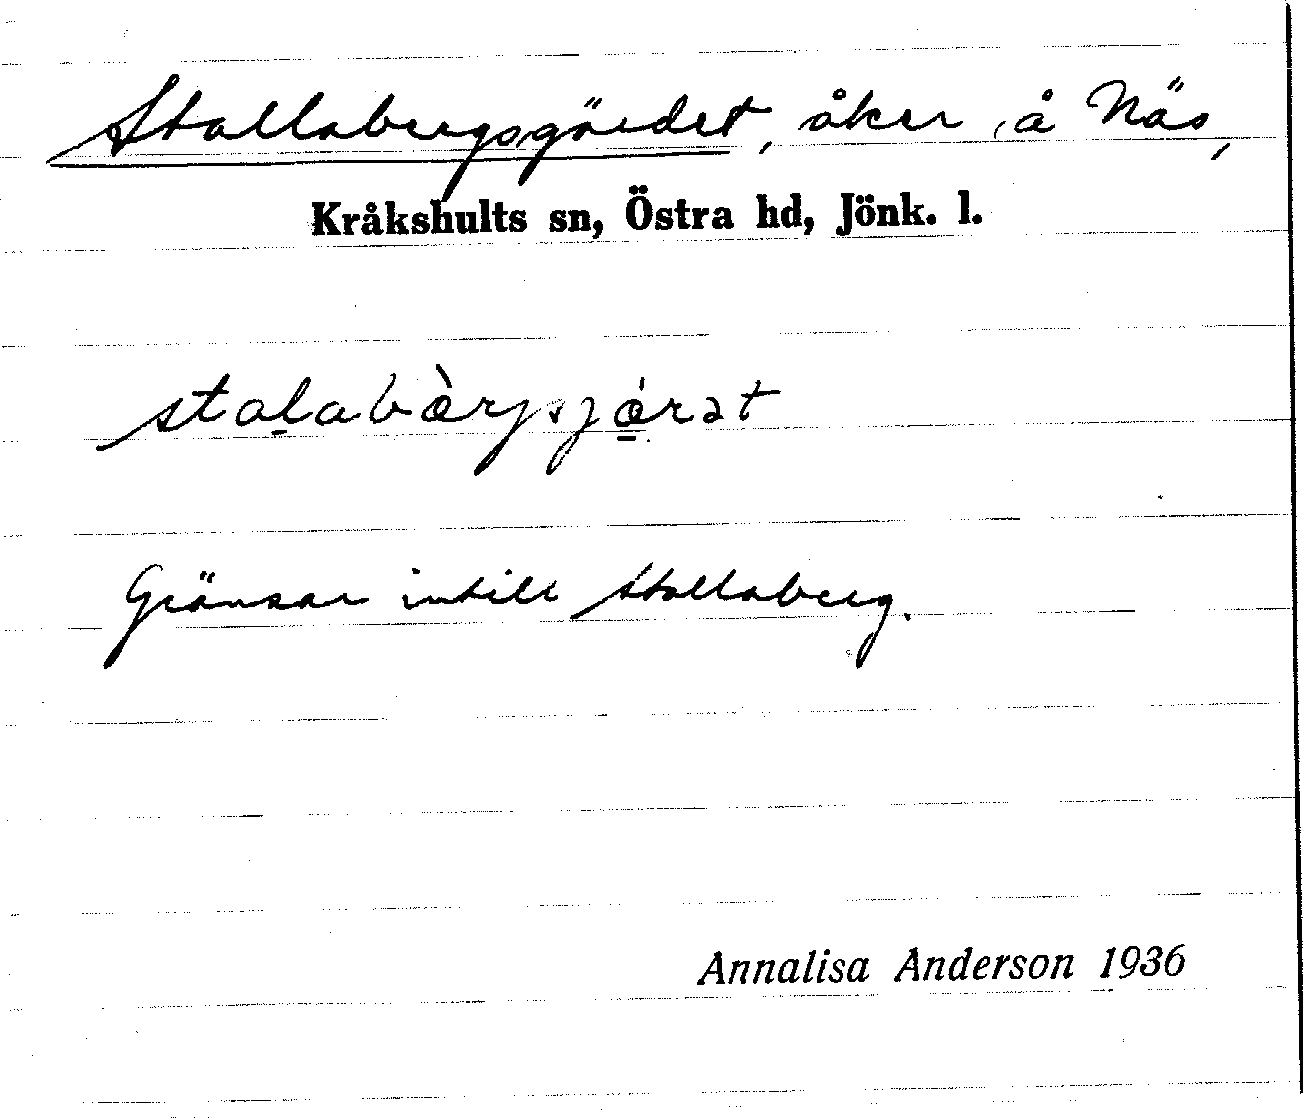 Stallabergsgärdet, åker å Näs,
Kråkshults sn, Östra hd, Jönk. l.
Gränsar intill Stallaberg.
Annalisa Anderson 1936